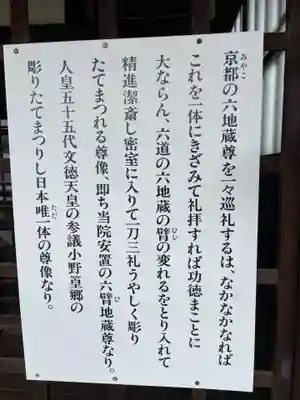 京都の六地蔵尊を一々巡礼するは、なかなかなれば
みやこ
これを一体にきざみて礼拝すれば功徳まことに
大ならん、六道の六地蔵の臂の変れるをとり入れて
ひぢ
精進潔斎し密室に入りて一刀三礼うやしく彫り
たてまつれる尊像、即ち当院安置の六臂地蔵尊なり。
ひ
人皇五十五代文徳天皇の参議小野篁郷の
彫りたてまつりし日本唯一体の尊像なり。
ただ